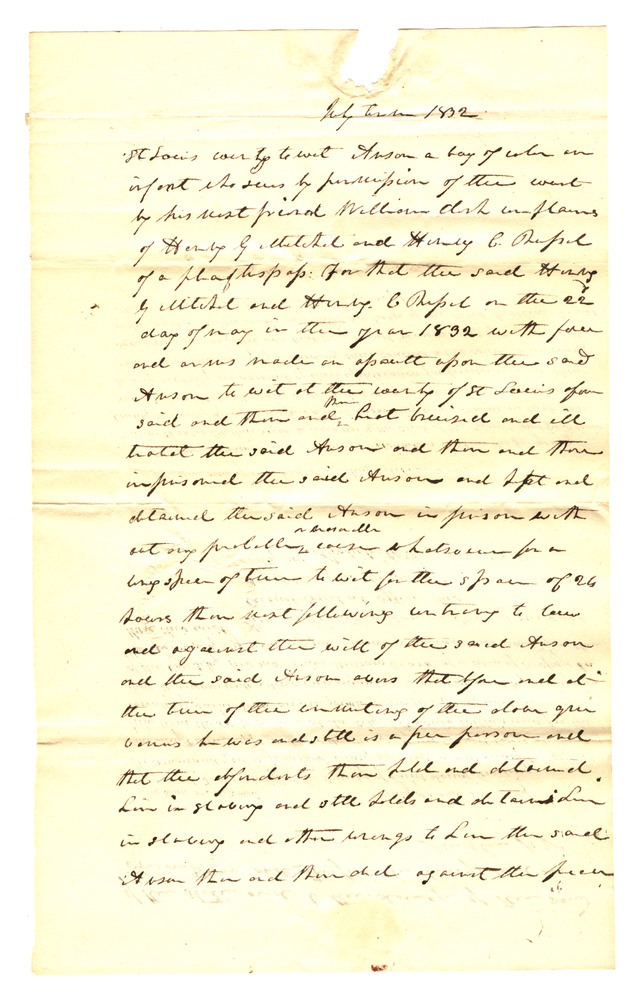 July term 1832
St Louis county to wit Anson a boy of color an
infant who sues by permission of the court
by his next friend William complains
of Henry G Mitchel and Henry C. Russel
of a plea of trespass: For that the said Henry
G Mitchel and Henry. C Russel on the 22d
day of may in the year 1832 with force
and arms made an assault upon the said
Anson to wit at the county of St Louis afore
said and then and then beat bruised and ill
treated the said Anson and then and there
imprisoned the said Anson and kept and
detained the said Anson in prison with
out any probable or reasonable cause whatsoever for a
long space of time to wit for the space of 26
hours then next following contrary to law
and against the will of the said Anson
and the said Anson avers that before and at
the time of the committing of the above grie
vances he was and still is a free person and
that the defendants then held and detained
him in slavery and still holds and detains him
in slavery and other wrongs to him the said
Anson then and there did against the peace